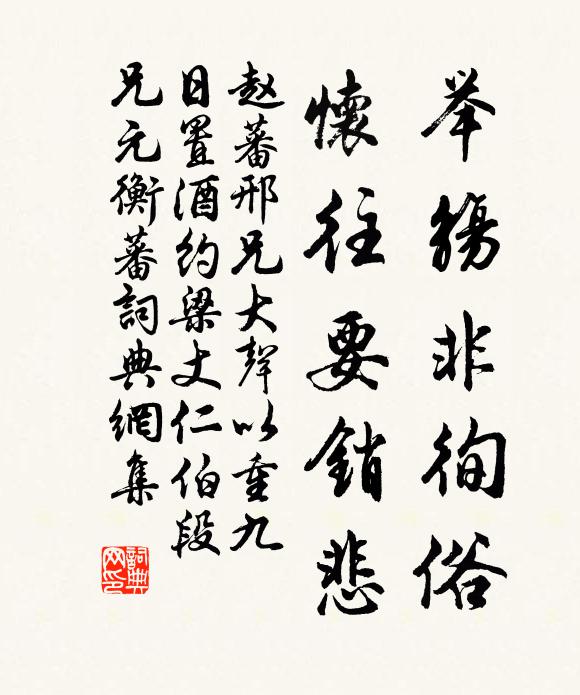 举觞非徇俗
懷往要銷悲
赵蕃邢兄大聲以重九
日置酒約梁丈仁伯段
兄元衡蕃詞典網集
詞典
网印